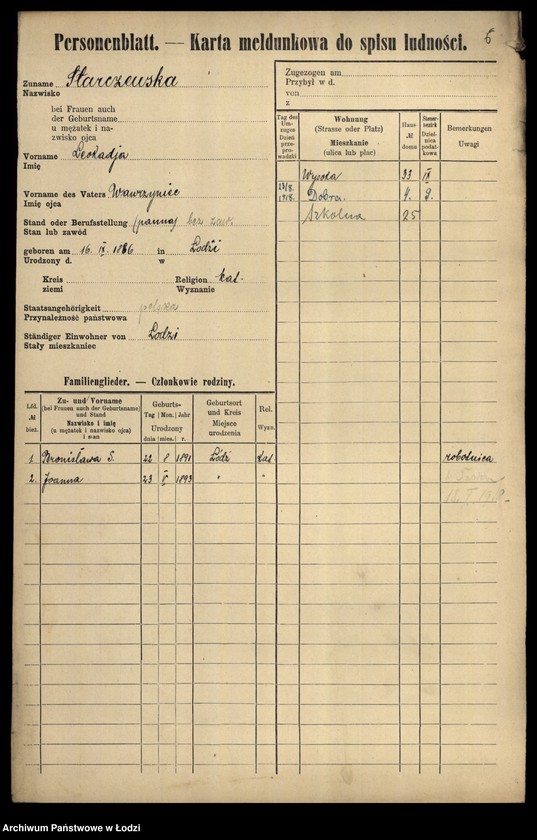 6
Personenblatt. — Karta meldunkowa do spisu ludności.
Zuname Starczewska
Nazwisko
bei Frauen auch
der Geburtsname
u mężatek i na-
zwisko ojca
Vorname Leokadja
Imię
Vorname des Vaters Wawrzyniec
Imię ojca
Stand oder Berufsstellung (panna) bez zaw.
Stan lub zawód
geboren am 16. IX. 1886 in Łodzi
Urodzony d. w
Kreis Religion kat.
ziemi Wyznanie
Staatsangehörigkeit polska
Przynależność państwowa
Ständiger Einwohner von Łodzi
Stały mieszkaniec
Zugezogen am
Przybył w d.
von
z
Tag des Um-zuges Dzień prze-pro-wadzki | Wohnung (Strasse oder Platz) Mieszkanie (ulica lub plac) | Haus-№ domu | Steuer-bezirk Dziel-nica podat-kowa | Bemerkungen Uwagi
Wysoka 33 IX
13/8. 1918. Dobra. 4. 9.
Szkolna 25
Familienglieder. — Członkowie rodziny.
Lfd. № bież. | Zu- und Vorname (bei Frauen auch der Geburtsname) und Stand Nazwisko i imię (u mężatek i nazwisko ojca) i stan | Geburts- Tag Mon. Jahr Urodzony dnia mies. r. | Geburtsort und Kreis Miejsce urodzenia | Rel. Wyzn.
1. Bronisława S. 22 8 1891 Łódź kat robotnica
2. Joanna 23 V 1893 " "